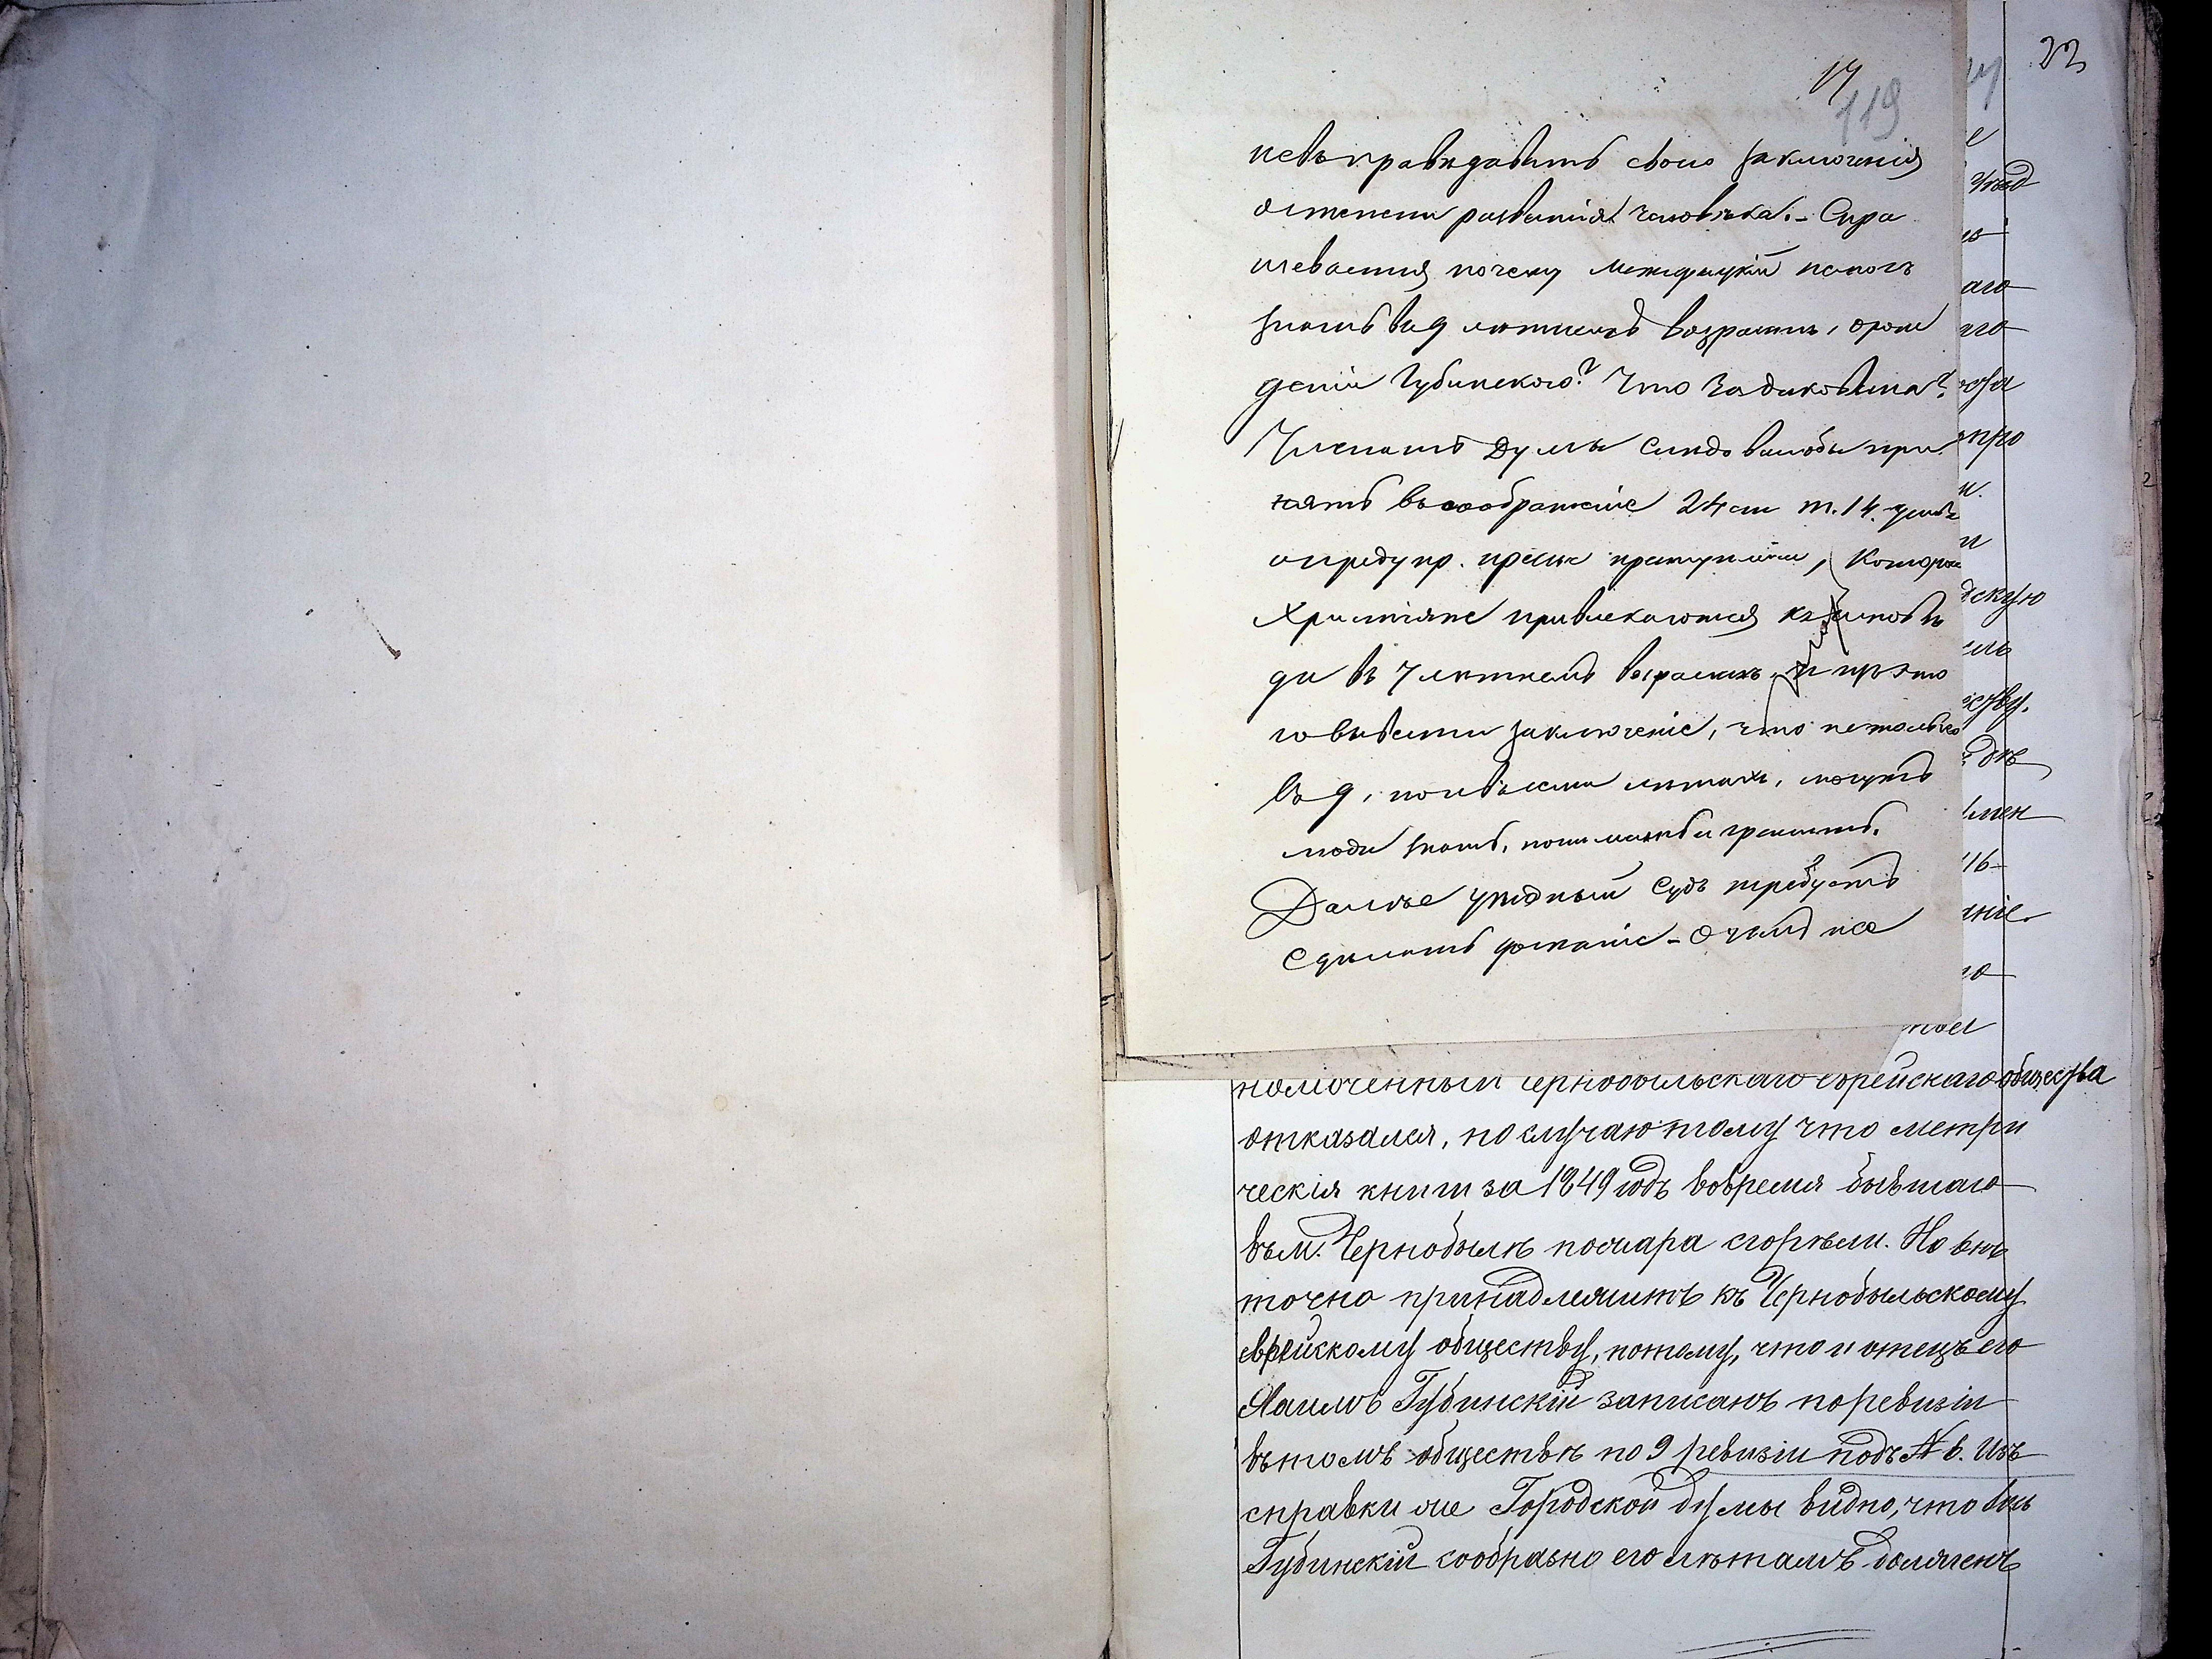 17
119
22
невъ правѣ давать свого заключенія
о степени развитія человѣка. – Спра
шевается почему Межирицкій немогъ
знать въ 9 лѣтнемъ возрастѣ, о рож
деніи Губинского? Что за диковина?
Членамъ Думы слѣдовалобы при
нять въ соображеніе 24 ст т. 14.
о предупр. и преступленій,
Христіяне привлекаются къ исповѣ
ди въ 7 лѣтнемъ возрастѣ, и изъ это
го вывести заключеніе, что не только
въ 9, но и въ семи лѣтахъ, могутъ
люди знать, понимать и грешить.
Далѣе уѣздный Судъ требуетъ
сдѣлать дознаніе – о чемъ не
номоченный Чернобыльскаго Еврейскаго общества
отказался, по случаю тому что метри
ческія книги за 1849 годъ вовремя бывшаго
въ м. Чернобылѣ пожара сгорѣли. Но онъ
точно принадлежитъ къ Чернобыльскому
еврейскому обществу, потому, что и отецъ его
Хаимъ Губинскій записанъ по ревизіи
въ томъ обществѣ по 9 ревизіи подъ № 6. Изъ
справки же Городской думы видно, что онъ
Губинскій сообразно его лѣтамъ долженъ